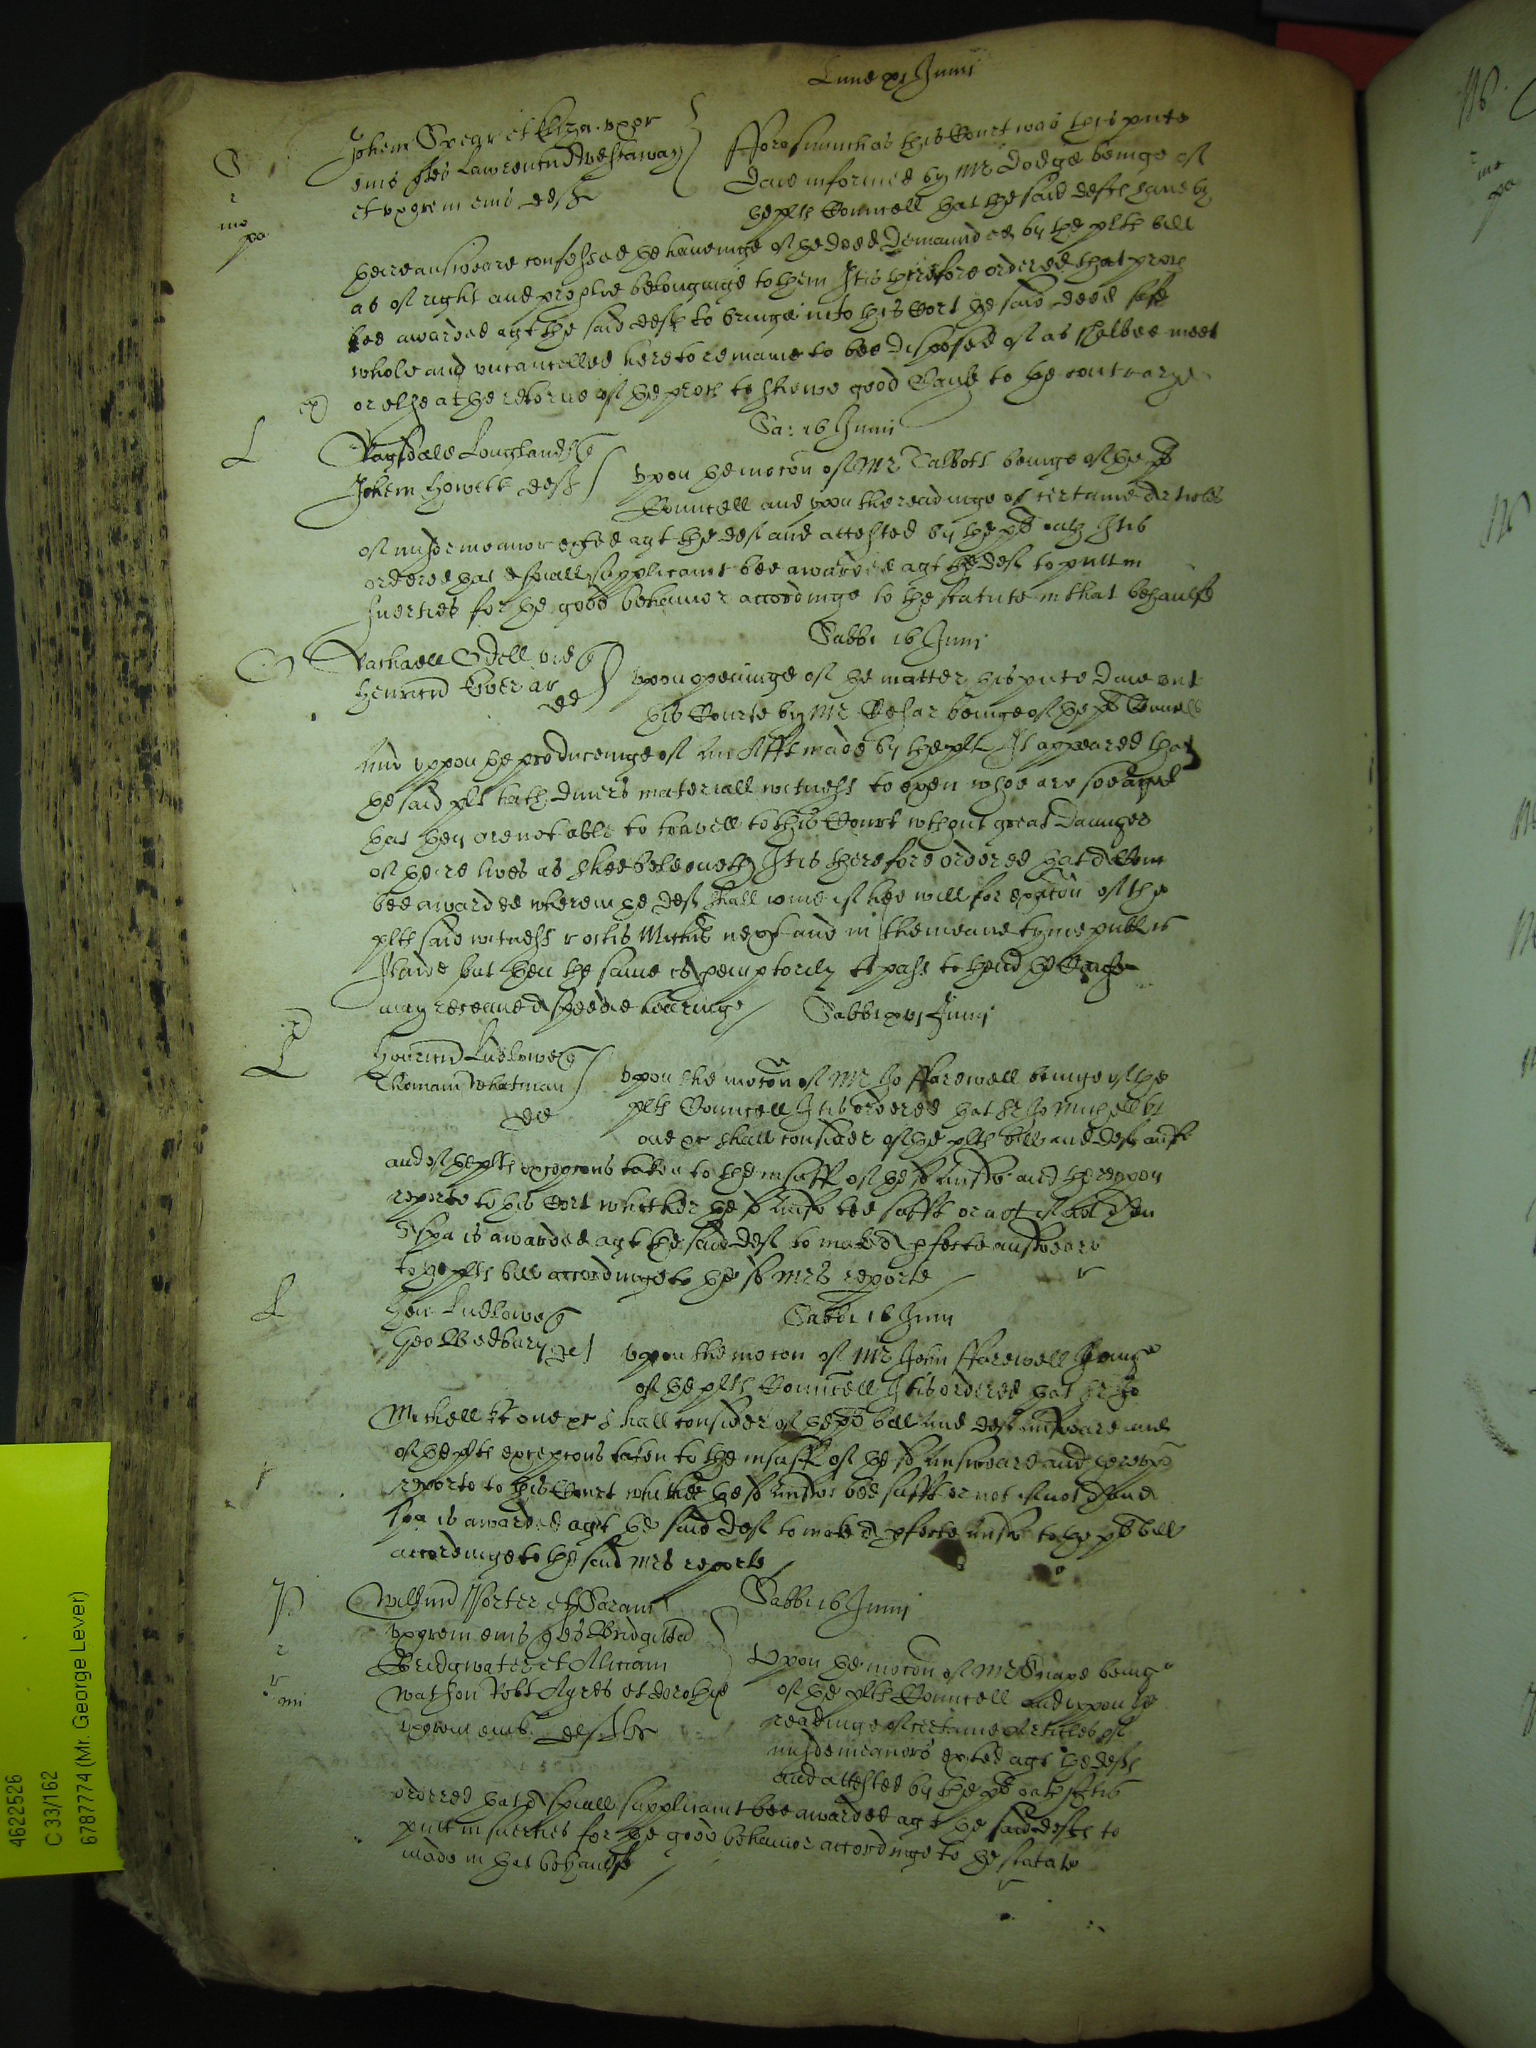 Lune xi Junii
S
Johem Speer et Eliza uxor
eius ples Lawrencm Westaway
et uxorem eius defts
Forasmuch as this Court was this pnte
daie informed by Mr Dodge beinge of
the plts Councell that the said defts have by
there answeare confessed the haveinge of the deed demaunded by the plts bill
as of right and properlie belonginge to them It is therefore ordered that proces
bee awarded agt the said defts to bringe into this Cort the said deed safe
whole and uncancelled here to remaine to bee disposed of as shalbee meet
or else at the retorne of the proces to shewe good Cause to the contrarye
L
Sa: 16 Junii
Ragsdale Longland
Johem Howett deft
Upon the mocon of Mr Talbott beinge of the pl
Councell and upon the readinge of certaine Articles
of misdemeanor exhted agt the deft and attested by the pl oath It is
ordered that a speciall supplicavit bee awarded agt the deft to putt in
suerties for the good behavior accordinge to the statute in that behaulfe
Sabbi 16 Junii
O
Rachaell Odell vid
Henricu Everar
de
Upon openinge of the matter this pnte daie unt
this Courte by Mr Cesar beinge of the pl Councell
And uppon the produceinge of an Afft made by the plt It appeared that
the said plt hath divers materiall witness to exen whoe are soe aged
that they are not able to travell to this Court wthout great daunger
of there lives as shee beleeveth It is therefore ordered that a Com
bee awarded wherein the deft shall ioine if hee will for exacon of the
plts said witness Michis next and in the meane tyme public
staied but then the same is pemptorily to pass to thend the Cause
may receave a speedie hearing
Sabbi xvi Junii
L
Henricu Ludlowe
Thomam Whatman
de
Upon the mocon of Mr Jo Farewell beinge of the
plts Councell It is ordered that Sr Jo Michell kt
one &c shall consider of the plts bill and defts answ
and of the plts excepcons taken to the insuff of the sd Answ and thereupon
reporte to this Cort whether the sd Answ bee sufft or not if not then
a spa is awarded agt the said deft to make a pfecte answeare
to the plts bill accordinge to the sd Mrs reporte
L
Sabbi 16 Junii
Hen: Ludlowe
Geo Bedbury de
Upon the mocon of Mr John Farewell being
of the plts Councell It is ordered that Sr Jo
Michell kt one &c shall consider of the pl bill and defts answeare and
of the plts excepcons taken to the insuff of the sd Answeare and thereupon
reporte to this Court whether the sd Answ bee sufft or not if not then a
spa is awarded agt the said deft to make a pfecte Answ to the pl bill
accordinge to the said Mrs reporte
P
Sabbi 16 Junii
Willmu Porter et Saram
uxorem eius ples Bridgittam
Bridgwater et Aliciam
Watson Robt Ayres et Dorothea
uxorem eius defts
Upon the mocon of Mr Snape being
of the plts Councell and upon the
readinge of certaine Articles of
misdemeanors exhted agt the defts
and attested by the pl oath It is
ordered that a speciall supplicavit bee awarded agt the said defts to
putt in suerties for the good behavior accordinge to the statute
made in that behaulfe
4622526
C 33/162
6787774 (Mr. George Lever)